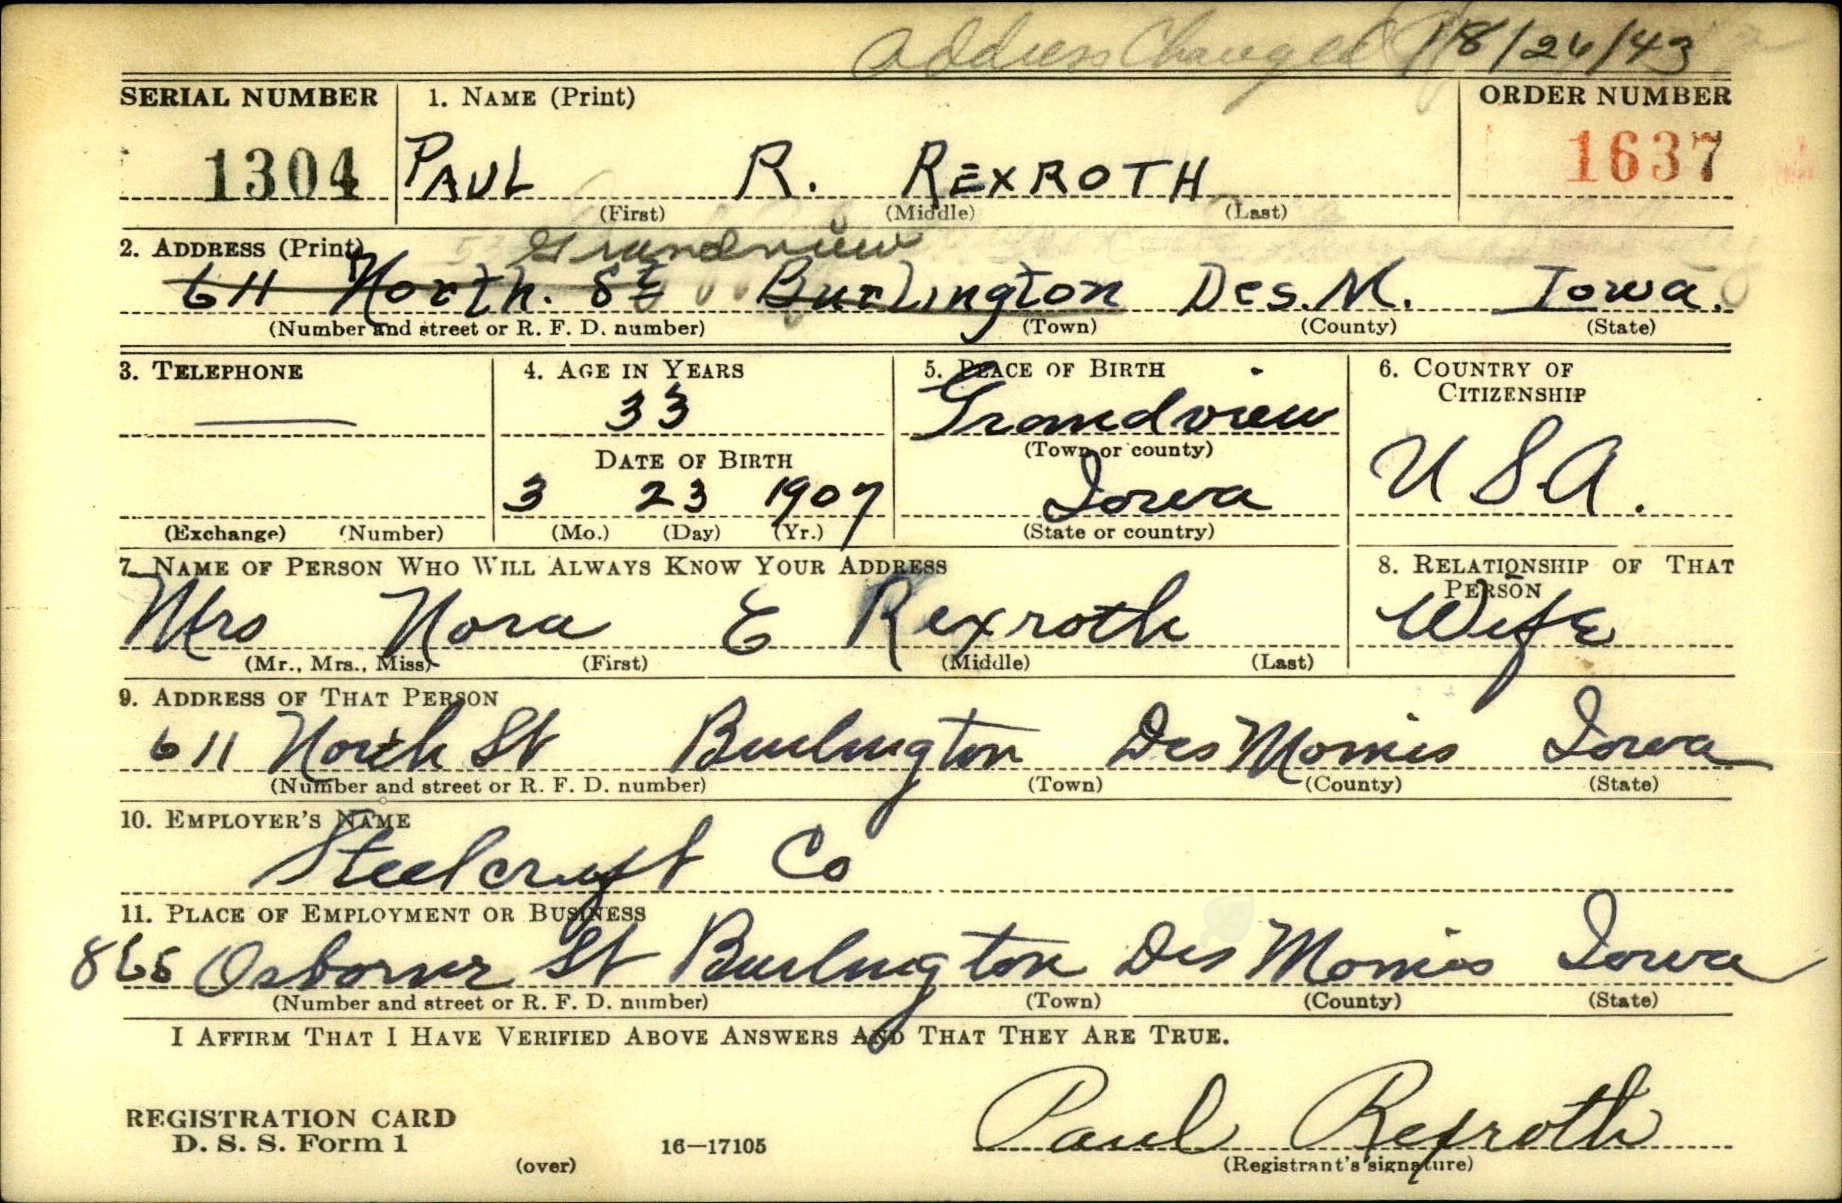 Address Changed 8/26/43
SERIAL NUMBER 1. NAME (Print) ORDER NUMBER
1304 PAUL R. REXROTH 1637
(First) (Middle) (Last)
2. ADDRESS (Print) Grandview
611 North. St Burlington Des. M. Iowa.
(Number and street or R. F. D. number) (Town) (County) (State)
3. TELEPHONE 4. AGE IN YEARS 5. PLACE OF BIRTH 6. COUNTRY OF
CITIZENSHIP
33 Grandview
(Town or county)
DATE OF BIRTH U S A.
3 23 1907 Iowa
(Exchange) (Number) (Mo.) (Day) (Yr.) (State or country)
7. NAME OF PERSON WHO WILL ALWAYS KNOW YOUR ADDRESS 8. RELATIONSHIP OF THAT
PERSON
Mrs Nora E Rexroth Wife
(Mr., Mrs., Miss) (First) (Middle) (Last)
9. ADDRESS OF THAT PERSON
611 North St Burlington Des Moines Iowa
(Number and street or R. F. D. number) (Town) (County) (State)
10. EMPLOYER'S NAME
Steelcraft Co
11. PLACE OF EMPLOYMENT OR BUSINESS
865 Osborner St Burlington Des Moines Iowa
(Number and street or R. F. D. number) (Town) (County) (State)
I AFFIRM THAT I HAVE VERIFIED ABOVE ANSWERS AND THAT THEY ARE TRUE.
REGISTRATION CARD
D. S. S. Form 1 16—17105 Paul Rexroth
(over) (Registrant's signature)